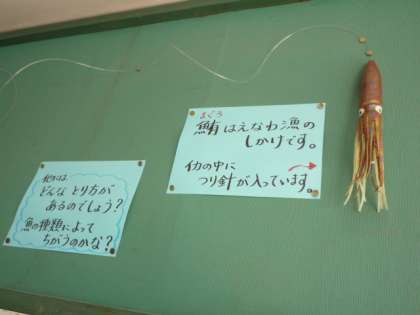 まぐろ
鮪はえなわ漁の
しかけです。
イカの中に
つり針が入っています。
どんなとり方が
あるのでしょう?
魚の種類によって
ちがうのかな?